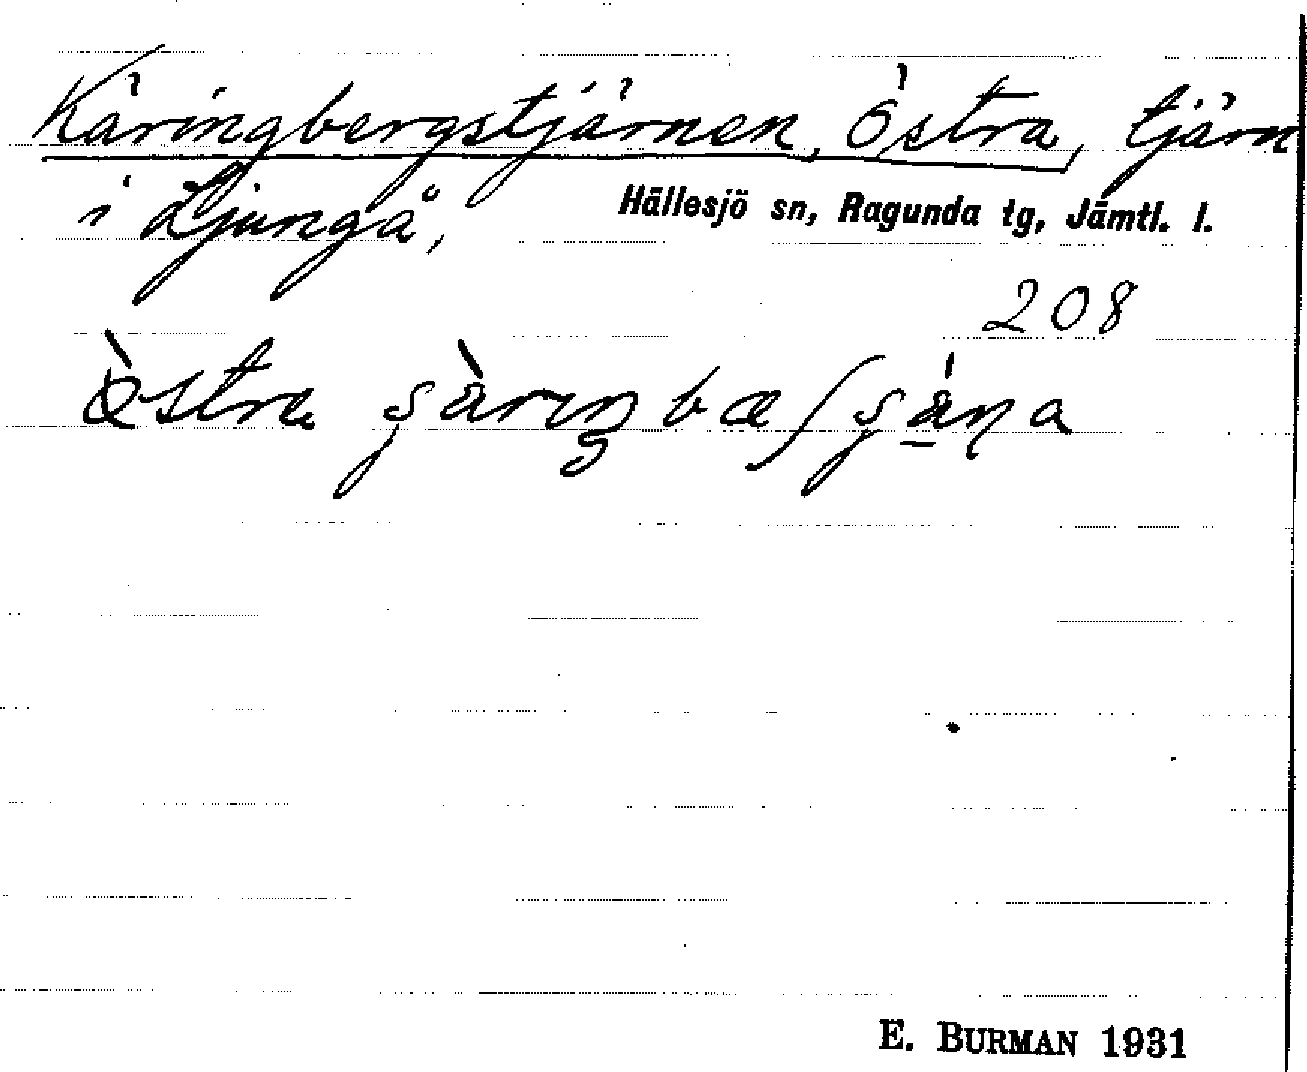 Käringbergstjärnen, Östra, tjärn
i Ljungå,
Hällesjö sn, Ragunda tg, Jämtl. l.
208
E. BURMAN 1931